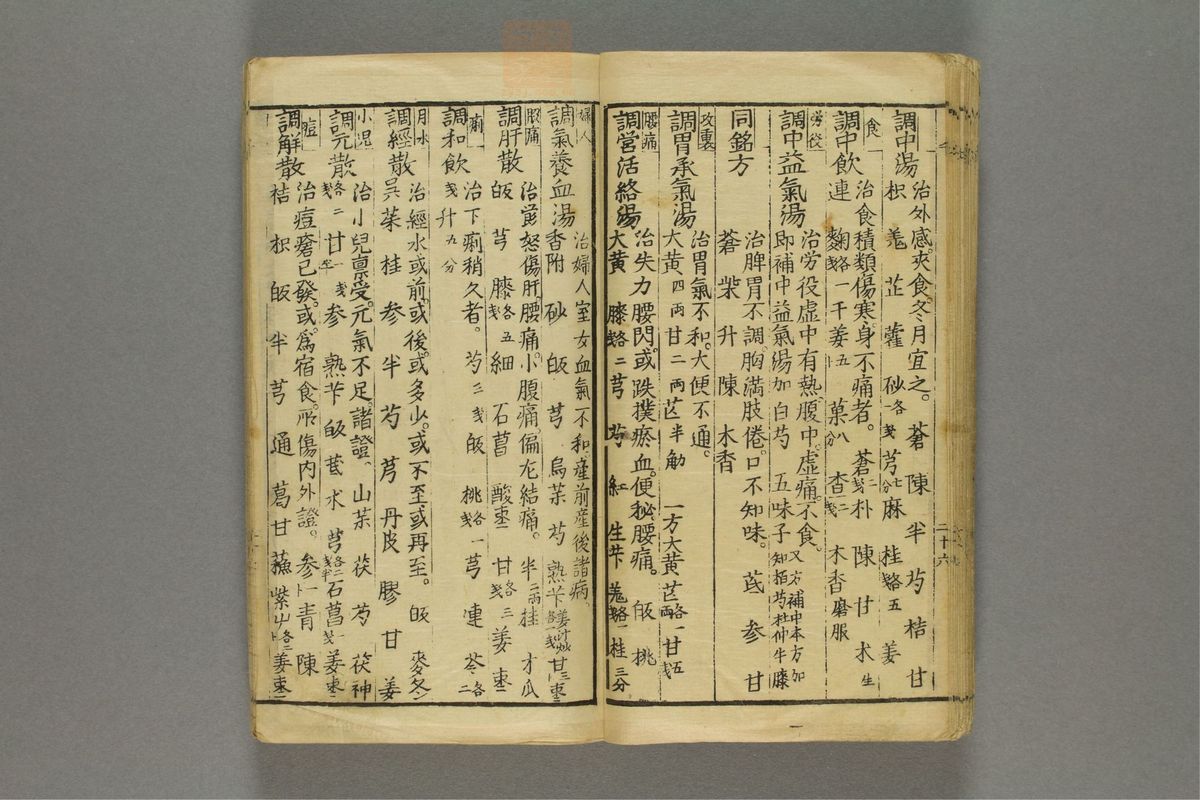 調中湯 治外感。夾食。冬月宜之。蒼 陳 半 芍 桔 甘
枳 羗 芷 藿 砂 各戔 芎 七分 麻 桂 各戔 五 姜
食 調中飲 治食積類傷寒。身不痛者。蒼 二戔 朴 陳 甘 朮 生
連 麴 各戔 一 千姜 五 菓 八分 查 二戔 木香 磨服
労役 調中益氣湯 治労役虛中有熱。腹中虛痛。不食。又方補中本方加
即補中益氣湯加白芍 五味子 知栢芍杜仲牛膝
同銘方 治脾胃不調。胸満肢倦。口不知味。芪 参 甘
蒼 柴 升 陳 木香
攻裏 調胃承氣湯 治胃氣不和。大便不通。
大黄 四両 甘 二両 芒 半觔 一方大黄芒 各両 一甘 五戔
腰痛 調営活絡湯 治失力腰閃。或跌撲瘀血。便秘腰痛。皈 桃
大黄 膝 各戔 二 芎 芍 紅 生芐 羗 各戔 一 桂 三分
婦人 調氣養血湯 治婦人室女血氣不和。産前産後諸病
香附 砂 皈 芎 烏茱 芍 熟芐 姜汁炒 甘 三 棗 二
腰痛 調肝散 治欝怒傷肝腰痛。小腹痛。偏左結痛。半 二両 桂 才瓜
皈 芎 膝 各戔 五 細 石菖 酸棗 甘 各戔 三 姜 棗
痢 調和飲 治下痢稍久者。芍 三戔 皈 桃 各戔 一 芎 連 苓 各二
戔 升 九分
月水 調經散 治經水或前。或後。或多少。或不至或再至。皈 麥冬 二
呉茱 桂 参 半 芍 芎 丹皮 膠 甘 姜
小児 調元散 治小兒禀受元氣不足。諸證。山茱 茯 芍 茯神
各戔 二 甘 一戔半 参 熟芐 皈 芪 水 芎 各二戔半 石菖 一戔 姜 棗 二
痘 調解散 治痘瘡已發。或為宿食所傷内外證。参 青 陳
桔 枳 皈 半 芎 通 葛 甘 蘓 紫艸 各二 姜 棗 二
二十六